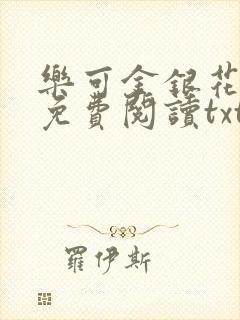 樂可金銀花
免費閱讀txt
羅伊斯